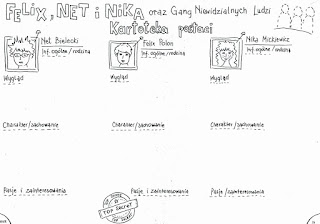 FELIX, NET i NIKA oraz Gang Niewidzialnych Ludzi
Kartoteka postaci
Net Bielecki
Inf. ogólne / rodzina
Wygląd
Charakter/zachowanie
Pasje i zainteresowania
Felix Polon
Inf. ogólne / rodzina
Wygląd
Charakter/zachowanie
Pasje i zainteresowania
Nika Mickiewicz
Inf. ogólne / rodzina
Wygląd
Charakter/zachowanie
Pasje / zainteresowania
TOP SECRET